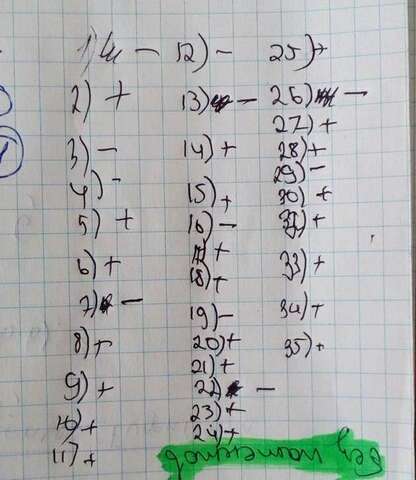 1) –
2) +
3) –
4) -
5) +
6) +
7) –
8) +
9) +
10) +
11) +
12) –
13) –
14) +
15) +
16) –
17) +
18) +
19) –
20) +
21) +
22) –
23) +
24) +
25) +
26) –
27) +
28) +
29) –
30) +
33) +
34) +
35) +
без